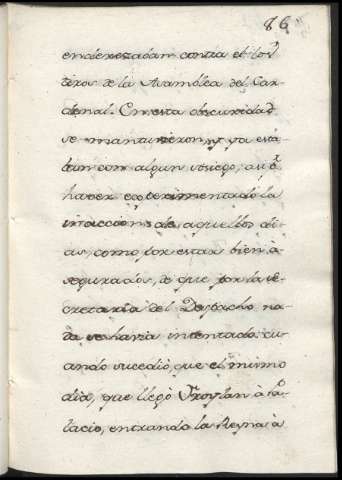 86
enderezadas contra el los
tiros de la Asamblea del Car-
denal. En esta obscuridad
se mantuvieron, y ya esta-
ban con algun sosiego, asi
haver experimentado la
inaccion de aquellos di-
as, como por estar bien a-
segurados, de que por la Se-
cretaria del Despacho na-
da se havia intentado. cu-
ando sucedió, que el mismo
dia, que llegó Froylan à Pa-
lacio, entrando la Reyna à